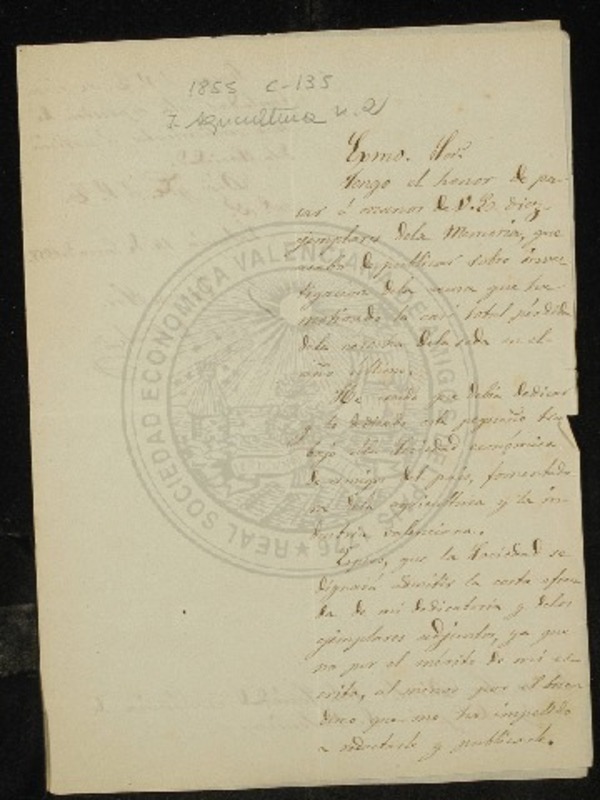 1855 C-135
I. Agricultura n. 2
Exmo. Sor.
Tengo el honor de pa-
sar á manos de V. E. diez
ejemplares dela Memoria, que
acabo de publicar sobre inves-
tigacion dela causa que ha
motivado la casi total pérdida
dela cosecha dela seda en el
año último.
He creido que debia dedicar
y he dedicado este pequeño tra-
bajo ála Sociedad económica
de amigos del pais, fomentado-
ra dela agricultura y la in-
dustria valenciana.
Espero, que la Sociedad se
dignará admitir la corta ofren-
da de mi dedicatoria y delos
ejemplares adjuntos, ya que
no por el mérito de mi es-
crito, al menos por el buen
deseo que me ha impelido
a redactarlo y publicarlo.
REAL SOCIEDAD ECONOMICA VALENCIANA DE AMIGOS DEL PAIS
1776